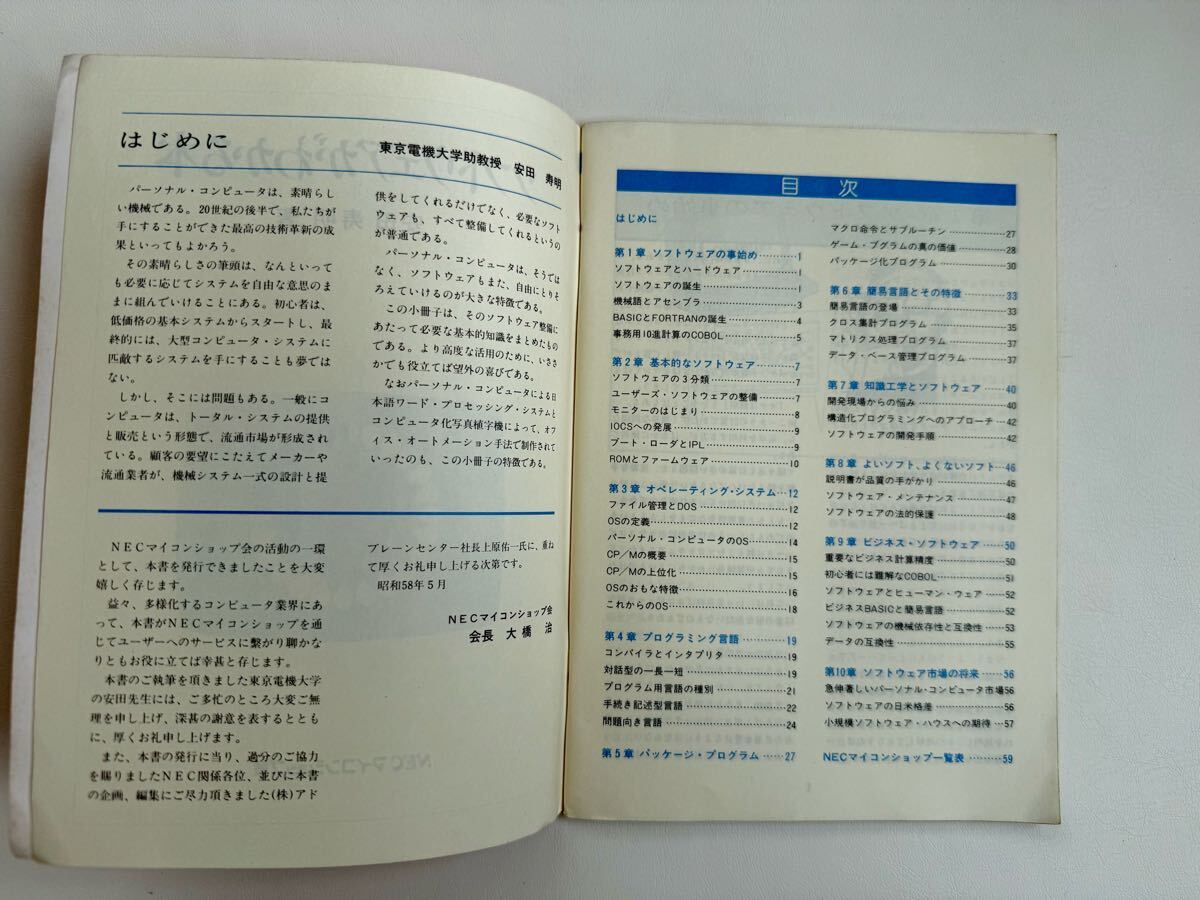 はじめに
東京電機大学助教授　安田　寿明
パーソナル・コンピュータは、素晴らし
い機械である。20世紀の後半で、私たちが
手にすることができた最高の技術革新の成
果といってもよかろう。
その素晴らしさの筆頭は、なんといって
も必要に応じてシステムを自由な意思のま
まに組んでいけることにある。初心者は、
低価格の基本システムからスタートし、最
終的には、大型コンピュータ・システムに
匹敵するシステムを手にすることも夢では
ない。
しかし、そこには問題もある。一般にコ
ンピュータは、トータル・システムの提供
と販売という形態で、流通市場が形成され
ている。顧客の要望にこたえてメーカーや
流通業者が、機械システム一式の設計と提
供をしてくれるだけでなく、必要なソフト
ウェアも、すべて整備してくれるというの
が普通である。
パーソナル・コンピュータは、そうでは
なく、ソフトウェアもまた、自由にとりそ
ろえていけるのが大きな特徴である。
この小冊子は、そのソフトウェア整備に
あたって必要な基本的知識をまとめたもの
である。より高度な活用のために、いささ
かでも役立てば望外の喜びである。
なおパーソナル・コンピュータによる日
本語ワード・プロセッシング・システムと
コンピュータ化写真植字機によって、オフ
ィス・オートメーション手法で制作されて
いったのも、この小冊子の特徴である。
NECマイコンショップ会の活動の一環
として、本書を発行できましたことを大変
嬉しく存じます。
益々、多様化するコンピュータ業界にあ
って、本書がNECマイコンショップを通
じてユーザーへのサービスに繫がり聊かな
りともお役に立てば幸甚と存じます。
本書のご執筆を頂きました東京電機大学
の安田先生には、ご多忙のところ大変ご無
理を申し上げ、深甚の謝意を表するととも
に、厚くお礼申し上げます。
また、本書の発行に当り、過分のご協力
を賜りましたNEC関係各位、並びに本書
の企画、編集にご尽力頂きました(株)アド
ブレーンセンター社長上原佑一氏に、重ね
て厚くお礼申し上げる次第です。
昭和58年5月
NECマイコンショップ会
会長　大橋　治
目　次
はじめに
第1章 ソフトウェアの事始め…………1
ソフトウェアとハードウェア…………1
ソフトウェアの誕生…………1
機械語とアセンブラ…………3
BASICとFORTRANの誕生…………4
事務用10進計算のCOBOL…………5
第2章 基本的なソフトウェア…………7
ソフトウェアの3分類…………7
ユーザーズ・ソフトウェアの整備…………7
モニターのはじまり…………8
IOCSへの発展…………9
ブート・ローダとIPL…………9
ROMとファームウェア…………10
第3章 オペレーティング・システム…12
ファイル管理とDOS…………12
OSの定義…………12
パーソナル・コンピュータのOS…………14
CP/Mの概要…………15
CP/Mの上位化…………15
OSのおもな特徴…………16
これからのOS…………18
第4章 プログラミング言語…………19
コンパイラとインタプリタ…………19
対話型の一長一短…………19
プログラム用言語の種別…………21
手続き記述型言語…………22
問題向き言語…………24
第5章 パッケージ・プログラム…………27
マクロ命令とサブルーチン…………27
ゲーム・プグラムの真の価値…………28
パッケージ化プログラム…………30
第6章 簡易言語とその特徴…………33
簡易言語の登場…………33
クロス集計プログラム…………35
マトリクス処理プログラム…………37
データ・ベース管理プログラム…………37
第7章 知識工学とソフトウェア……40
開発現場からの悩み…………40
構造化プログラミングへのアプローチ…42
ソフトウェアの開発手順…………42
第8章 よいソフト、よくないソフト…46
説明書が品質の手がかり…………46
ソフトウェア・メンテナンス…………47
ソフトウェアの法的保護…………48
第9章 ビジネス・ソフトウェア……50
重要なビジネス計算精度…………50
初心者には難解なCOBOL…………51
ソフトウェアとヒューマン・ウェア……52
ビジネスBASICと簡易言語…………52
ソフトウェアの機械依存性と互換性……53
データの互換性…………55
第10章 ソフトウェア市場の将来……56
急伸著しいパーソナル・コンピュータ市場56
ソフトウェアの日米格差…………56
小規模ソフトウェア・ハウスへの期待…57
NECマイコンショップ一覧表………59